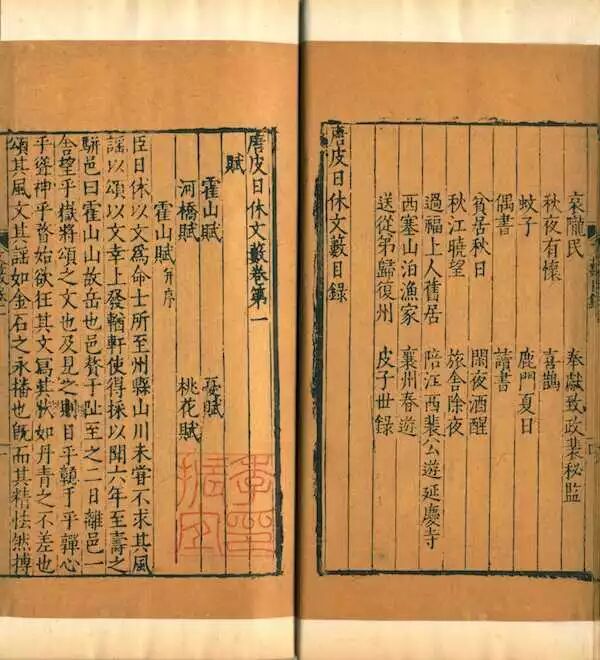 哀隴民 奉獻致政裴秘監
秋夜有懷 喜鵲
蚊子 鹿門夏日
偶書 讀書
貧居秋日 閑夜酒醒
秋江曉望 旅舍除夜
過福上人舊居 陪江西裴公遊延慶寺
西塞山泊漁家 襄州春遊
送從弟歸復州 皮子世錄
唐皮日休文藪目錄
唐皮日休文藪卷第一
賦
霍山賦 憂賦
河橋賦 桃花賦
霍山賦并序
臣日休以文爲命士所至州縣山川未嘗不求其風
謠以頌以文幸上發輶軒使得採以聞六年至壽之
駢邑曰霍山山故岳也邑贅于趾至之二日離邑一
舍望乎嶽將頌之文也及見之則目乎顛于乎殫心
乎聳神乎瞀始欲狂其文寫其狀如丹青之不差也
頌其風文其謠如金石之永播也旣而其精怯然搏